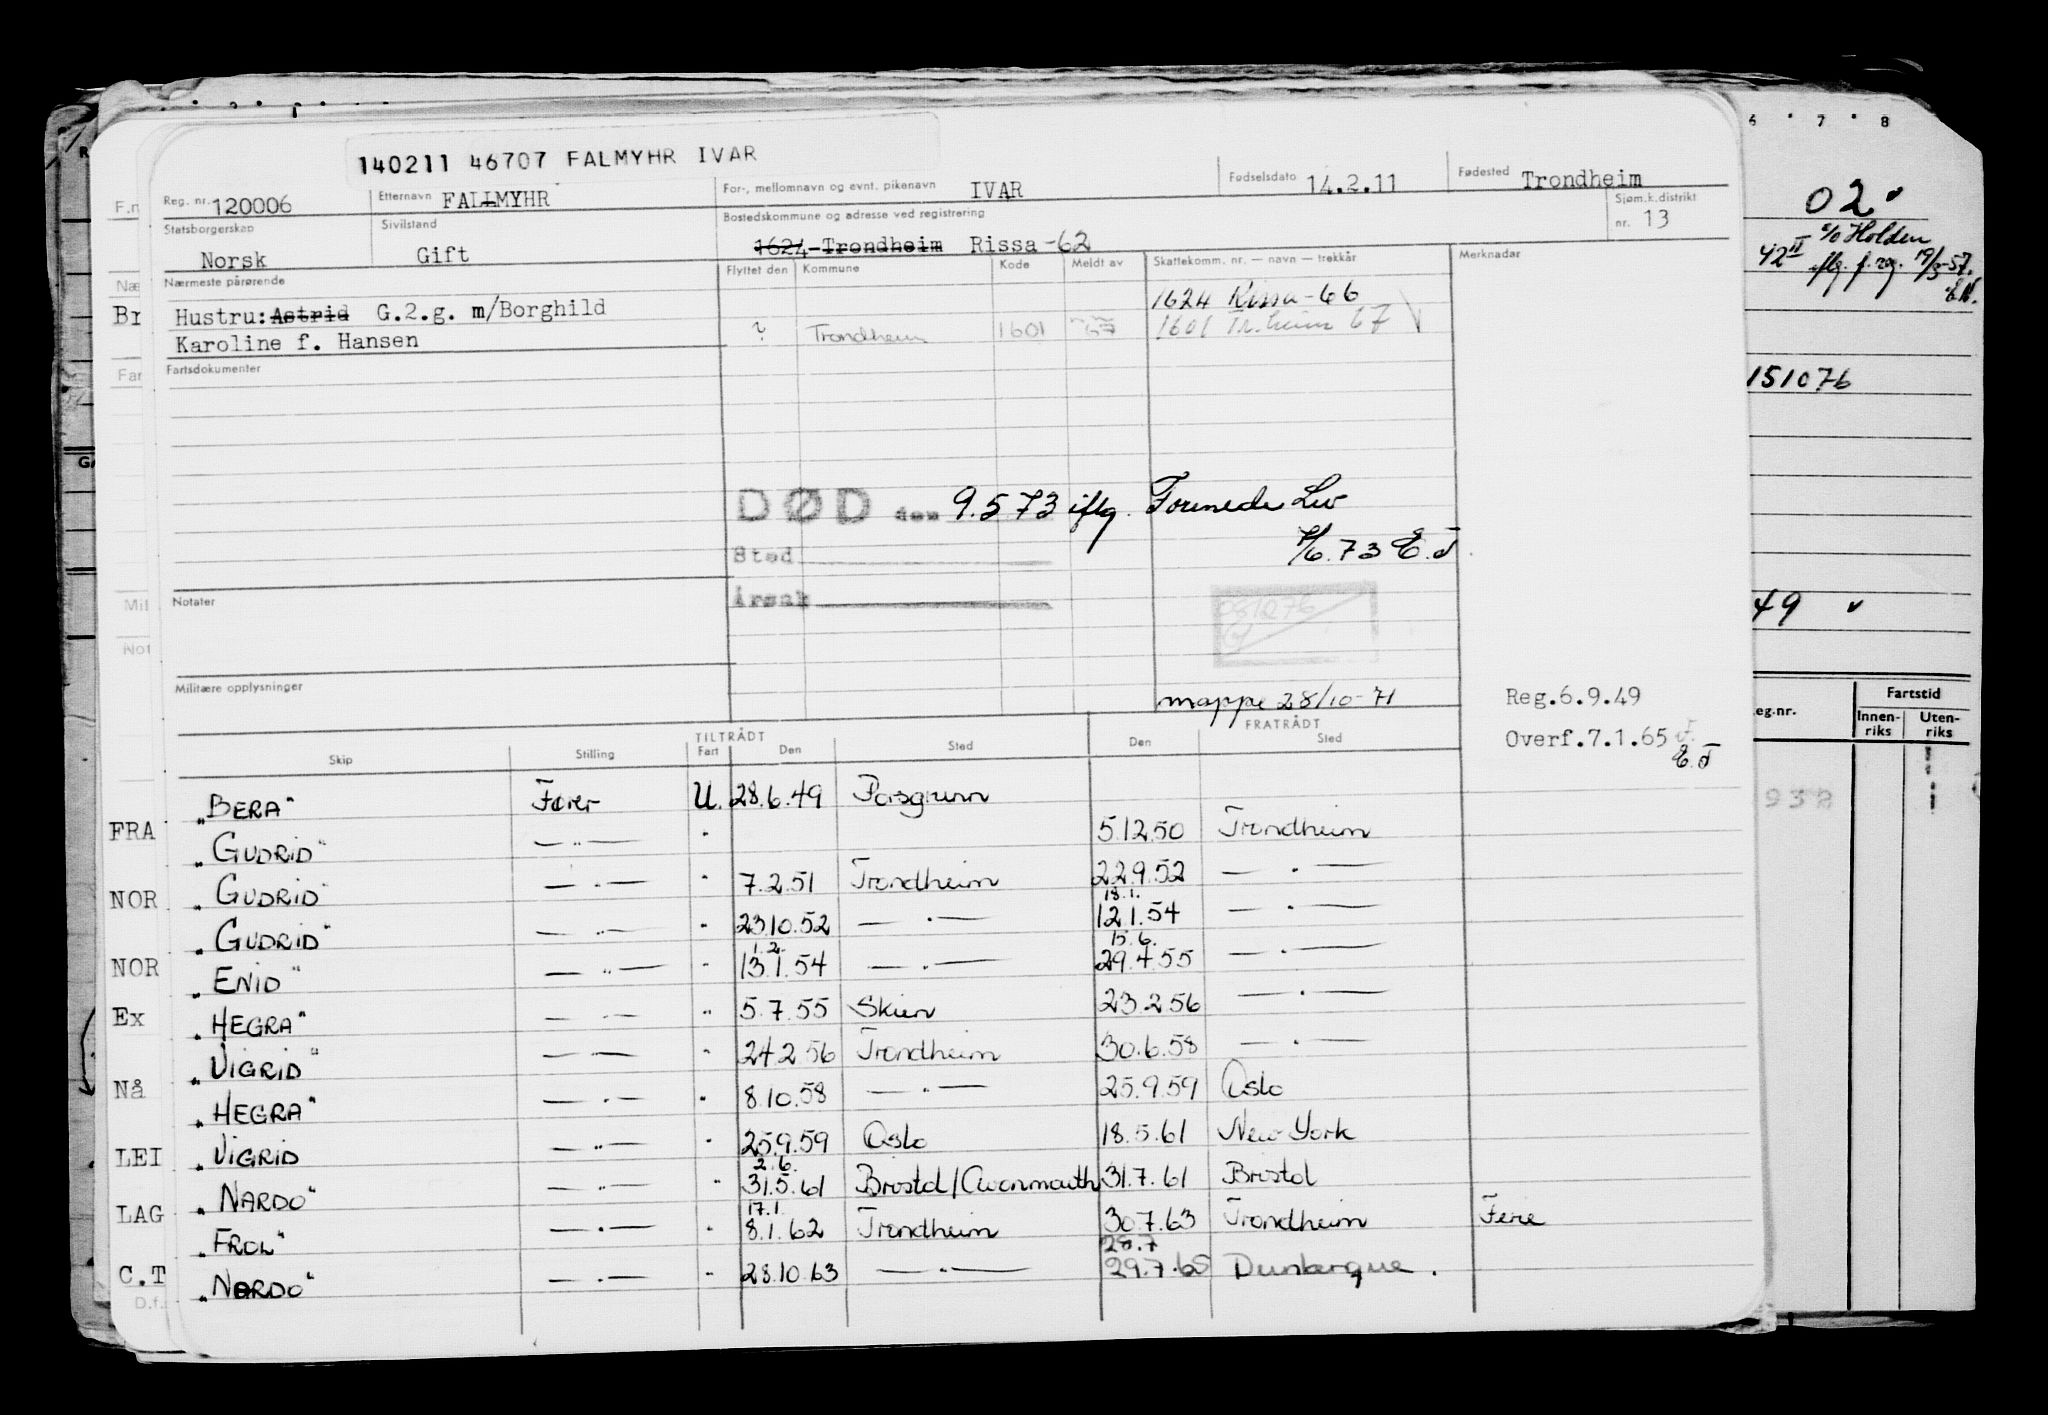 140211 46707 FALMYHR IVAR
Reg. nr. 120006 Etternavn FALLMYHR For-, mellomnavn og evnt. pikenavn IVAR Fødselsdato 14.2.11 Fødested Trondheim
Statsborgerskap Norsk Sivilstand Gift Bostedskommune og adresse ved registrering 1624-Trondheim Rissa-62 Sjøm.k.distrikt nr. 13
Nærmeste pårørende Flyttet den Kommune Kode Meldt av Skattekomm. nr. — navn — trekkår Merknader
Hustru: Astrid G.2.g. m/Borghild 1624 Rissa-66
Karoline f. Hansen ? Trondheim 1601 67 1601 Tr.heim 67
Fartsdokumenter
DØD den 9.5 73 iflg.
Sted 73 E.J.
Årsak
081276
Notater
Militære opplysninger
mappe 28/10-71
Reg.6.9.49
Overf.7.1.65
E.J
TILTRÅDT FRATRÅDT
Skip Stilling Fart Den Sted Den Sted
„BERA" Fører U. 28.6.49 Porsgrunn
„GUDRID" —"— " 5.12.50 Trondheim
„GUDRID" —"— " 7.2.51 Trondheim 22.9.52 —"—
18.1.
„GUDRID" —"— " 23.10.52 —"— 12.1.54 —"—
1.2. 15.6.
„ENID" —"— " 13.1.54 —"— 29.4.55 —"—
„HEGRA" —"— " 5.7.55 Skien 23.2.56 —"—
„VIGRID" —"— " 24.2.56 Trondheim 30.6.58 —"—
„HEGRA" —"— " 8.10.58 —"— 25.9.59 Oslo
„VIGRID —"— " 25.9.59 Oslo 18.5.61 New York
2.6.
„NARDO" —"— " 31.5.61 Bristol/Avonmouth 31.7.61 Bristol
17.1.
„FROL" —"— " 8.1.62 Trondheim 30.7.63 Trondheim Ferie
28.7
„NARDO" —"— " 28.10.63 —"— 29.7.65 Dunkerque.
F.n
Næ
Br
Far
Mil
Not
FRA
NOR
NOR
Ex
Nå
LEI
LAG
C.T
D.f.
6 7 8
02
c/o Holden
42 II iflg. f. reg. 19/3-57.
151076
49
eg.nr. Fartstid
Innen-riks Uten-riks
938